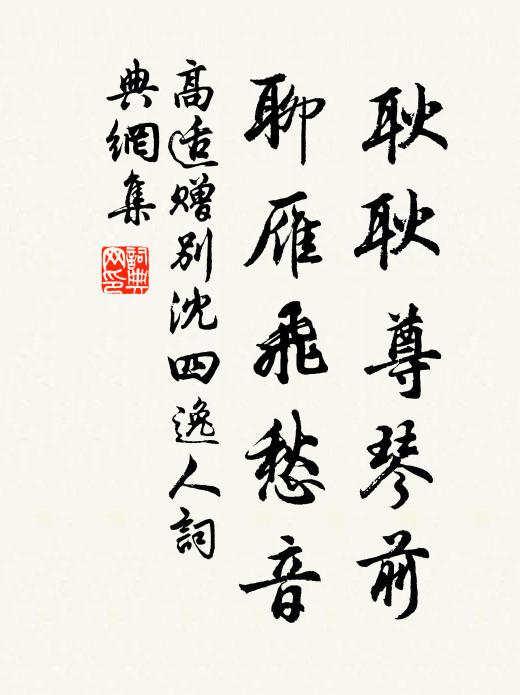 耿耿尊琴前
聊雁飛愁音
高适贈別沈四逸人詞
典網集
詞典網印